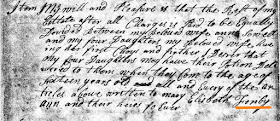 Item My will and Pleasure is that the Rest of my
Estate after all Charges is Paid to be Equally
Devided between my beloved wife ann Sewell
and my four Daughters my beloved wife
ing the first Choys and further I Desire that
my four Daughters may have their Potion Deli
vered to them when they Com to the age of
Sixteen years old and all and Every of the ar
ticles above written to mary
ann and their heirs for Ever
Elisabeth